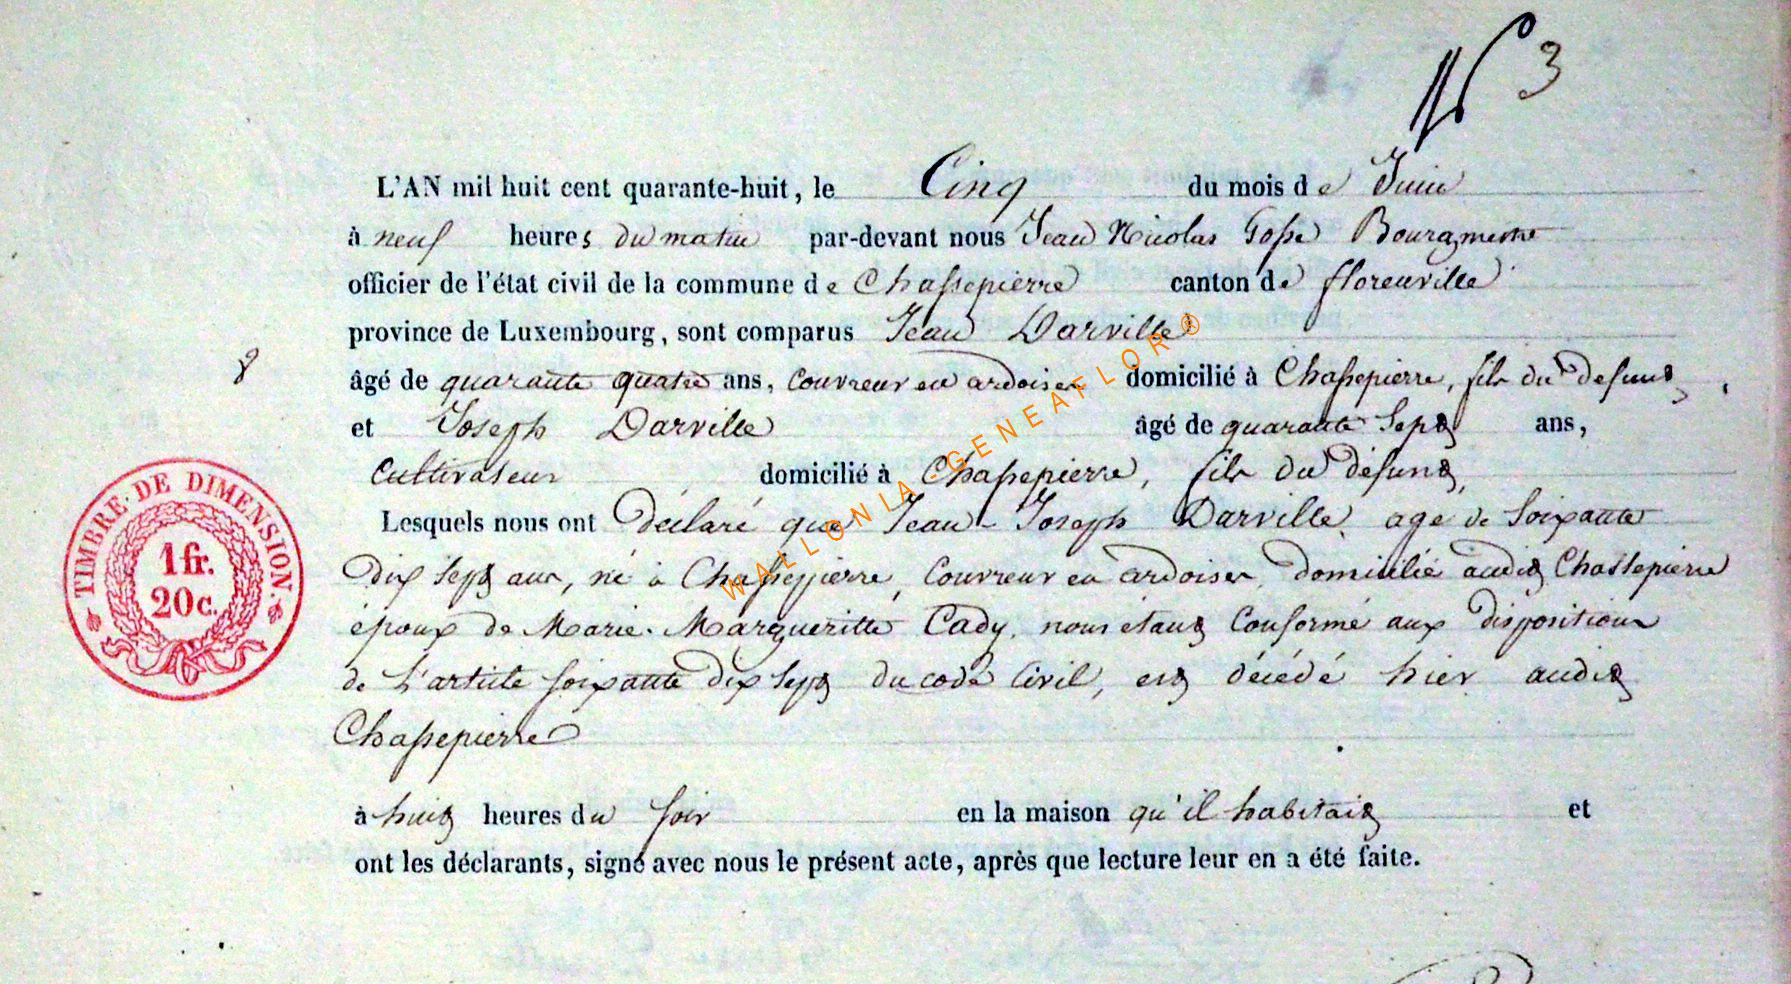 N° 3
L'AN mil huit cent quarante-huit, le Cinq du mois de Juin
à neuf heures du matin par-devant nous Jean Nicolas Gosse Bourgmestre
officier de l'état civil de la commune de Chassepierre canton de florenville
province de Luxembourg, sont comparus Jean Darville
8
âgé de quarante quatre ans, Couvreur en ardoises domicilié à Chassepierre, fils du defunt,
et Joseph Darville âgé de quarante sept ans,
Cultivateur domicilié à Chassepierre, fils du défunt,
Lesquels nous ont déclaré que Jean-Joseph Darville, age de soixante
dix sept ans, né à Chassepierre, Couvreur en ardoises, domicilié audit Chassepierre
époux de Marie-Margueritte Cady, nous étant Conformé aux dispositions
de l'article soixante dix sept du code Civil, est décédé hier audit
Chassepierre
à huit heures du soir en la maison qu'il habitait et
ont les déclarants, signé avec nous le présent acte, après que lecture leur en a été faite.
TIMBRE DE DIMENSION.
1 fr.
20 c.
WALLONIA-GENEAFLOR®